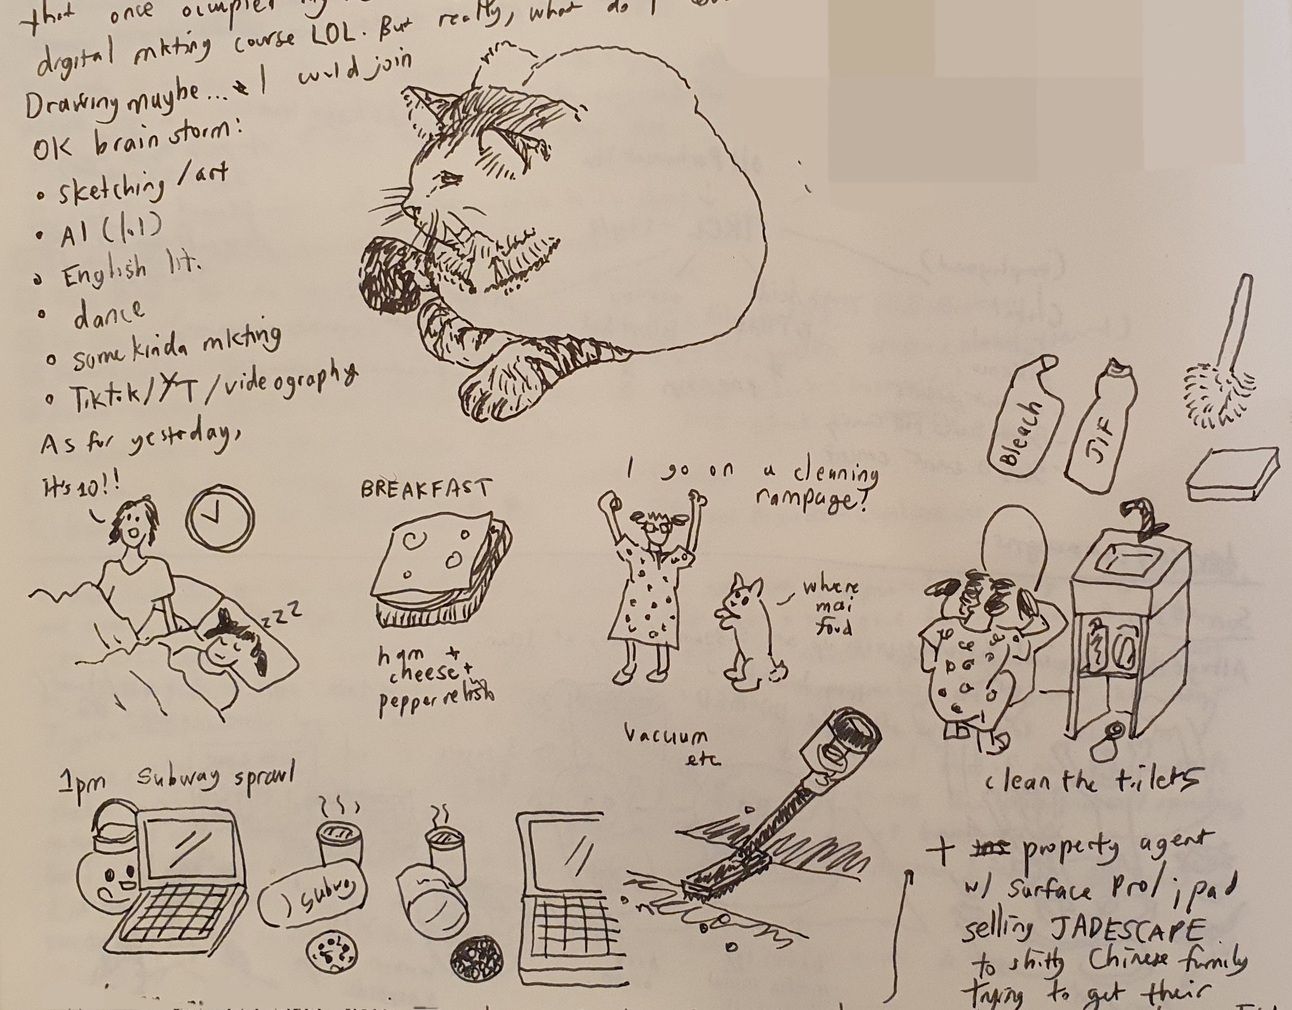 that once occupied my
digital mkting course LOL. But really, what do I
Drawing maybe... I would join
OK brainstorm:
• sketching/art
• AI (lol)
• English lit.
• dance
• some kinda mkting
• Tiktok/YT/videography
As for yesterday,
It's 10!!
zzz
BREAKFAST
ham +
cheese +
pepper relish
I go on a cleaning
rampage!
where
mai
food
Bleach
JIF
clean the toilets
Vacuum
etc
1pm Subway sprawl
Subway
+ property agent
w/ Surface Pro/ipad
selling JADESCAPE
to shitty Chinese family
trying to get their